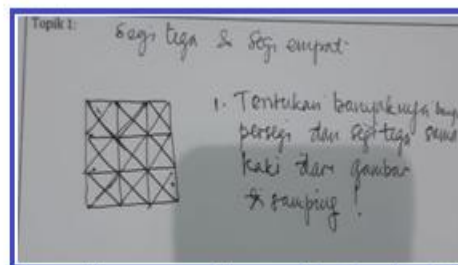 Topik 1:
Segi tiga & Segi empat
1. Tentukan banyaknya
persegi dan segitiga sama
kaki dari gambar
di samping !